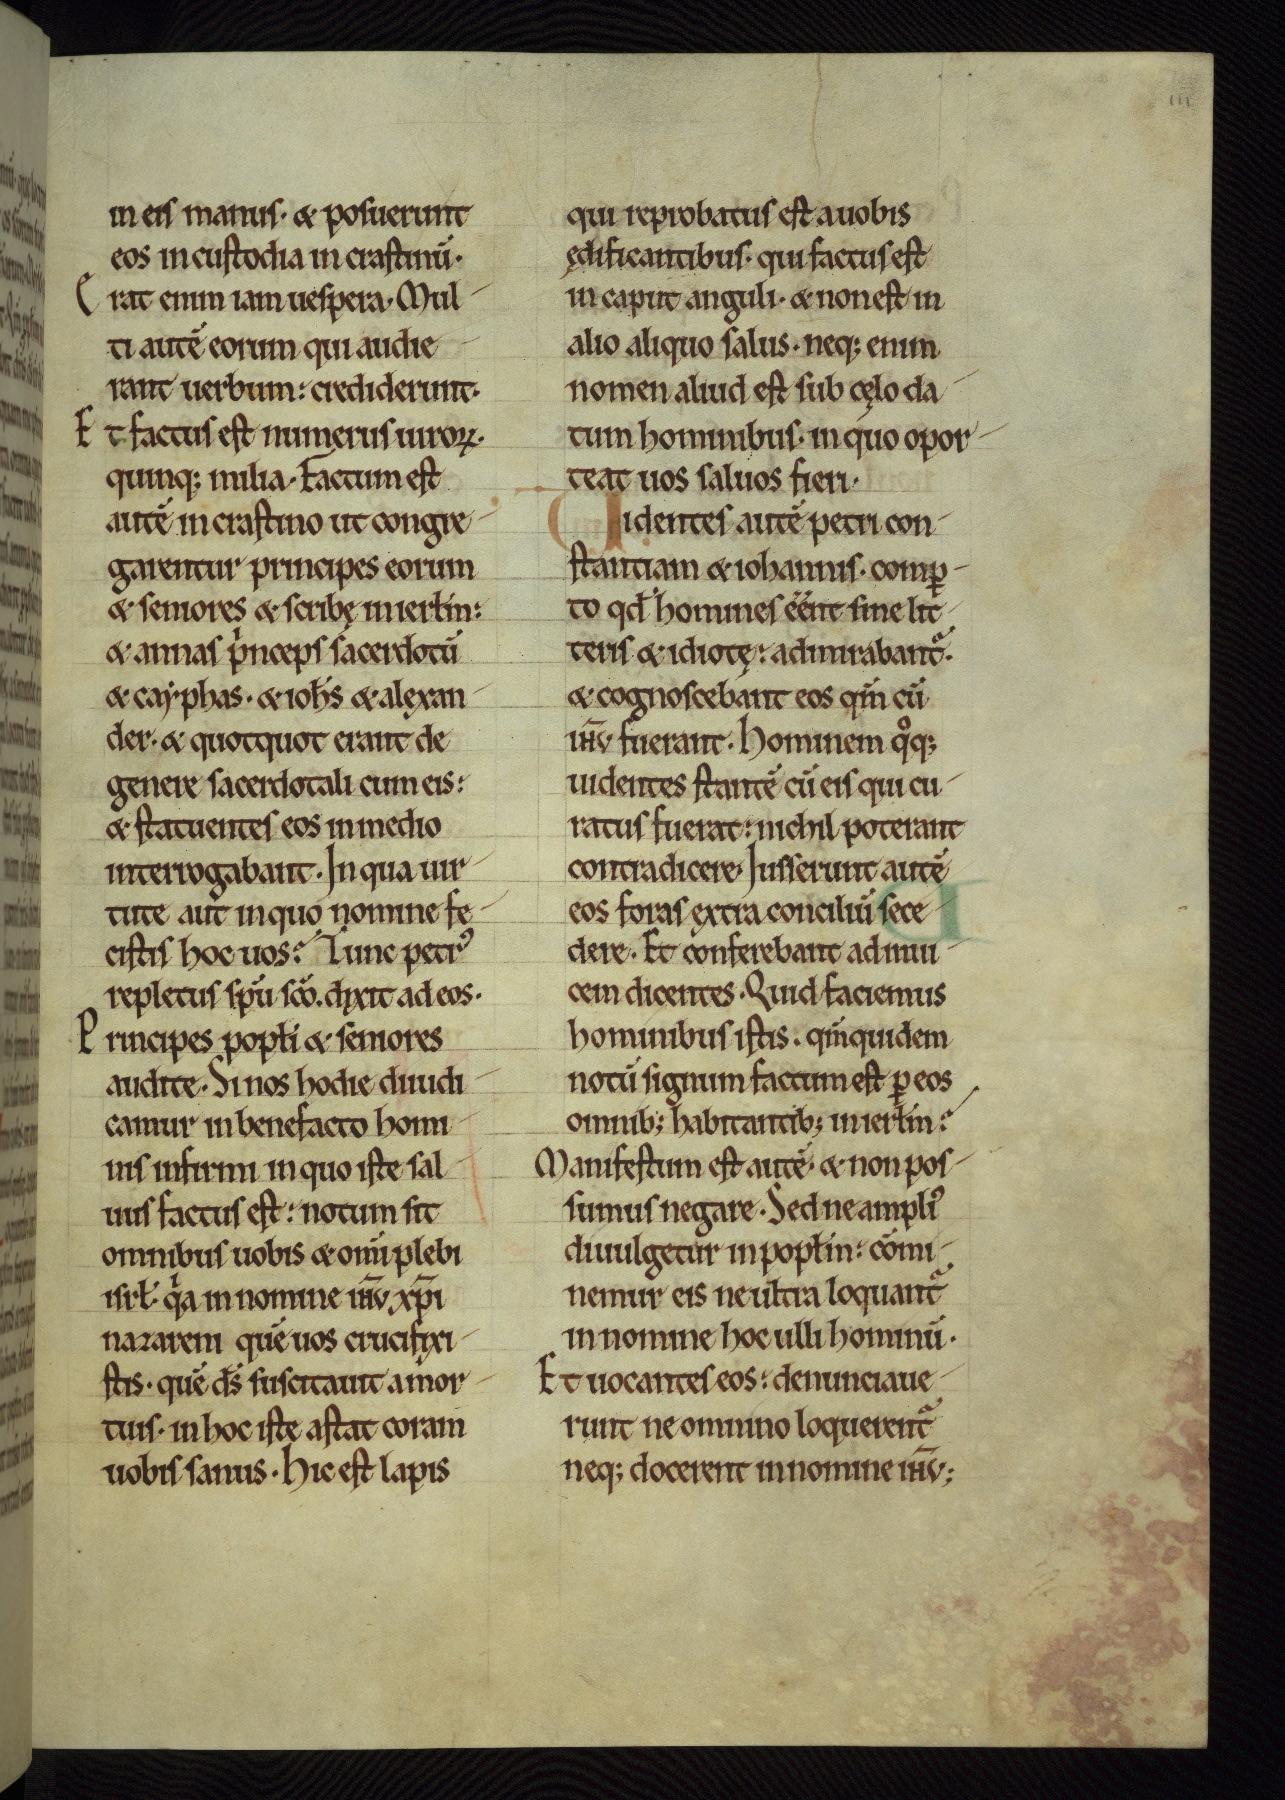 in eis manus· & posuerunt
eos in custodia in crastinū·
Erat enim iam uespera· Mul
ti autē eorum qui audie
rant uerbum: crediderunt·
Et factus est numerus uiroꝝ·
quinq; milia· Factum est
autē in crastino ut congre
garentur principes eorum
& seniores & scribę in ierłm:
& annas pͥnceps sacerdotū
& cayphas· & ioħs & alexan
der· & quotquot erant de
genere sacerdotali cum eis:
& statuentes eos in medio
interrogabant· In qua uir
tute aut in quo nomine fe
cistis hoc uos: Tunc petrꝰ
repletus spū sc̄o. dixit ad eos·
Principes popłi & seniores
audite· Si nos hodie diiudi
camur in benefacto homi
nis infirmi in quo iste sal
uus factus est: notum sit
omnibus uobis & om̄i plebi
isrł· qͥa in nomine ihū xp̄i
nazareni quē uos crucifixi
stis· quē ds̄ suscitauit a mor
tuis· in hoc iste astat coram
uobis sanus· Hic est lapis
qui reprobatus est a uobis
ędificantibus· qui factus est
in caput anguli· & non est in
alio aliquo salus· neq; enim
nomen aliud est sub cęlo da
tum hominibus· in quo opor
teat uos saluos fieri·
Uidentes autē petri con
stantiam & iohannis· comꝑ
to qđ homines eēnt sine lit
teris & idiotę: admirabantᷣ·
& cognoscebant eos qm̄ cū
ihū fuerant· Hominem qͦq;
uidentes stantē cū eis qui cu
ratus fuerat: nichil poterant
contradicere· Iusserunt autē
eos foras extra conciliū sece
dere· Et conferebant ad inui
cem dicentes· Quid faciemus
hominibus istis· qm̄ quidem
notū signum factum est ꝑ eos
omnib; habitantib; in ierłm:
Manifestum est autē· & non pos
sumus negare· Sed ne ampliꝰ
diuulgetur in popłm: cōmi
nemur eis ne ultra loquantᷣ
in nomine hoc ulli hominū·
Et uocantes eos: denunciaue
runt ne omnino loquerentᷣ
neq; docerent in nomine ihū;